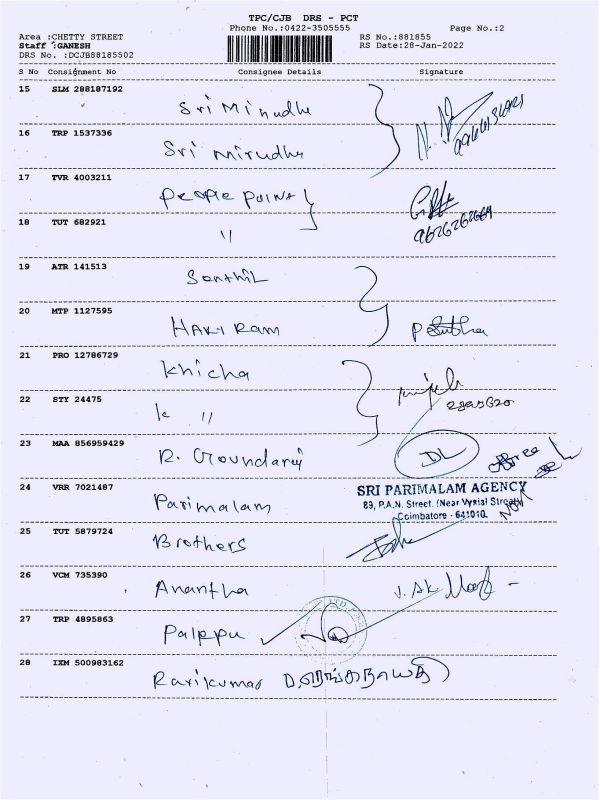 TPC/CJB DRS - PCT
Phone No.:0422-3505555 Page No.:2
Area :CHETTY STREET RS No.:881855
Staff :GANESH RS Date:28-Jan-2022
DRS No. :DCJB88185502
S No Consignment No Consignee Details Signature
15 SLM 288187192
Sri Mirudhu
16 TRP 1537336
Sri mirudhu
17 TVR 4003211
People Point
18 TUT 682921
"
9626262664
19 ATR 141513
Senthil
20 MTP 1127595
HARI RAM
21 PRO 12786729
Khicha
22 STY 24475
K "
23 MAA 856959429
R. Goundaraj
DL
24 VRR 7021487
Parimalam
SRI PARIMALAM AGENCY
89, P.A.N. Street, (Near Vysial Street)
Coimbatore - 641010.
25 TUT 5879724
Brothers
26 VCM 735390
Anantha
27 TRP 4895863
Palppu
28 IXM 500983162
Ravikumar